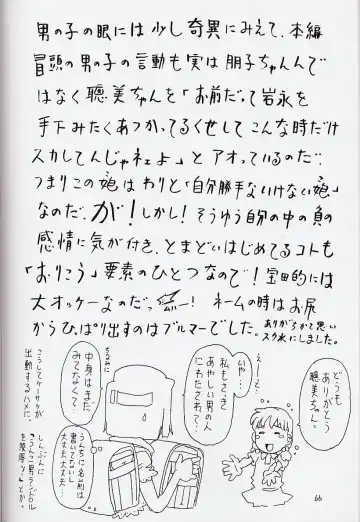 男の子の眼には少し奇異にみえて、本編
冒頭の男の子の言動も実は朋子ちゃんで
はなく聰美ちゃんを「お前だって岩永を
手下みたくあつかってるくせしてこんな時だけ
スカしてんじゃネェよ」とアオっているのだ。
つまりこの娘はわりと「自分勝手ないけない娘」
なのだ。が!しかし!そうゆう自分の中の負の
感情に気が付き、とまどいはじめてるコトも
「おりこう」要素のひとつなので!宝田的には
大オッケーなのだっ!ネームの時はお尻
からひっぱり出すのはブルマーでした。
ありがちかと思い
スク水にしました。
どうも
ありがとう
聰美ちゃん
え…と…
いや…
私もさっき
あやしい男の人
にわたされて…
ちなみに
中身はまだ
みてなくて…
うんちに名前は
書いてないし
大丈夫大丈夫…
こうしてケーサツが
出動するハメに。
しんぶんに
とか。
66